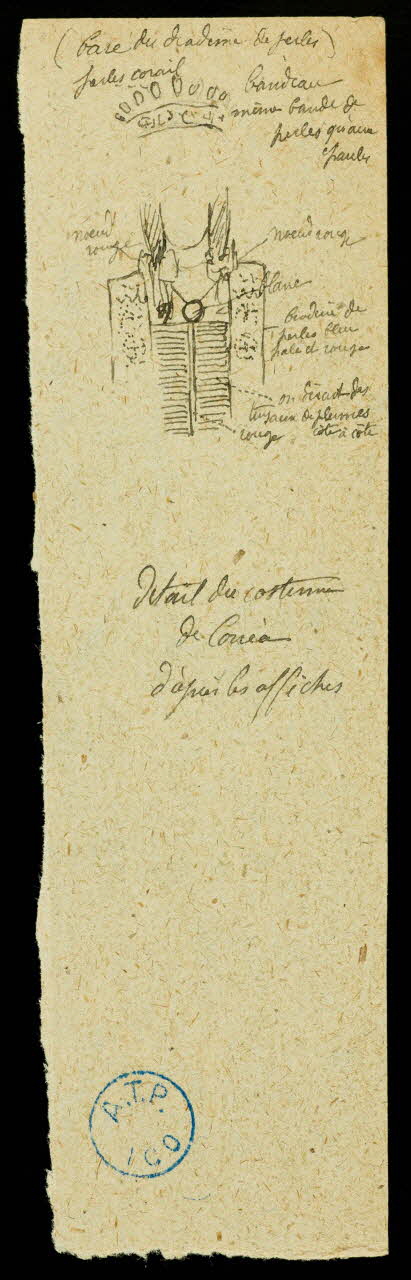 (base du diademe de perles)
perles corail
bandeau
même bande de
perles qu'aux
épaules
noeud
rouge
noeud rouge
blanc
broderie de
perles bleu
pale et rouge
on dirait des
tuyaux de plumes
côte à côte
rouge
détail du costume
de
d'après les affiches
A.T.P.